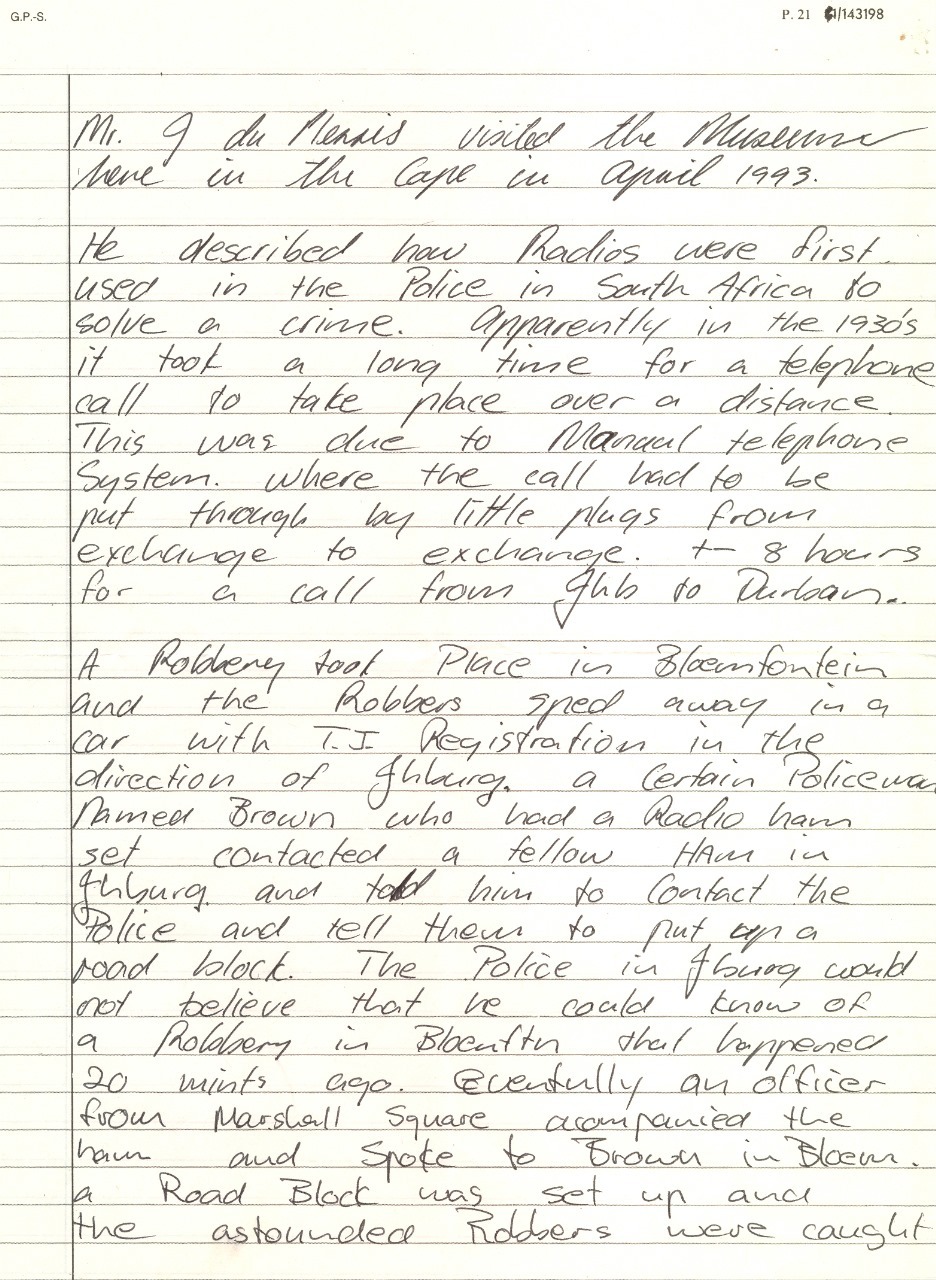 G.P.-S.
P. 21 81/143198
Mr. G du Plessis visited the Museum
here in the Cape in April 1993.
He described how Radios were first
used in the Police in South Africa to
solve a crime. Apparently in the 1930's
it took a long time for a telephone
call to take place over a distance.
This was due to Manual telephone
System. where the call had to be
put through by little plugs from
exchange to exchange. +- 8 hours
for a call from Jhb to Durban..
A Robbery took Place in Bloemfontein
and the Robbers sped away in a
car with T.J. Registration in the
direction of Jhburg. a Certain Policeman
Named Brown who had a Radio ham
set contacted a fellow HAm in
Jhburg. and told him to Contact the
Police and tell them to put up a
road block. The Police in Jburg would
not believe that he could know of
a Robbery in Bloemftn that happened
20 mints ago. Eventully an officer
from Marshall Square acompanied the
ham and Spoke to Brown in Bloem.
a Road Block was set up and
the astounded Robbers were caught